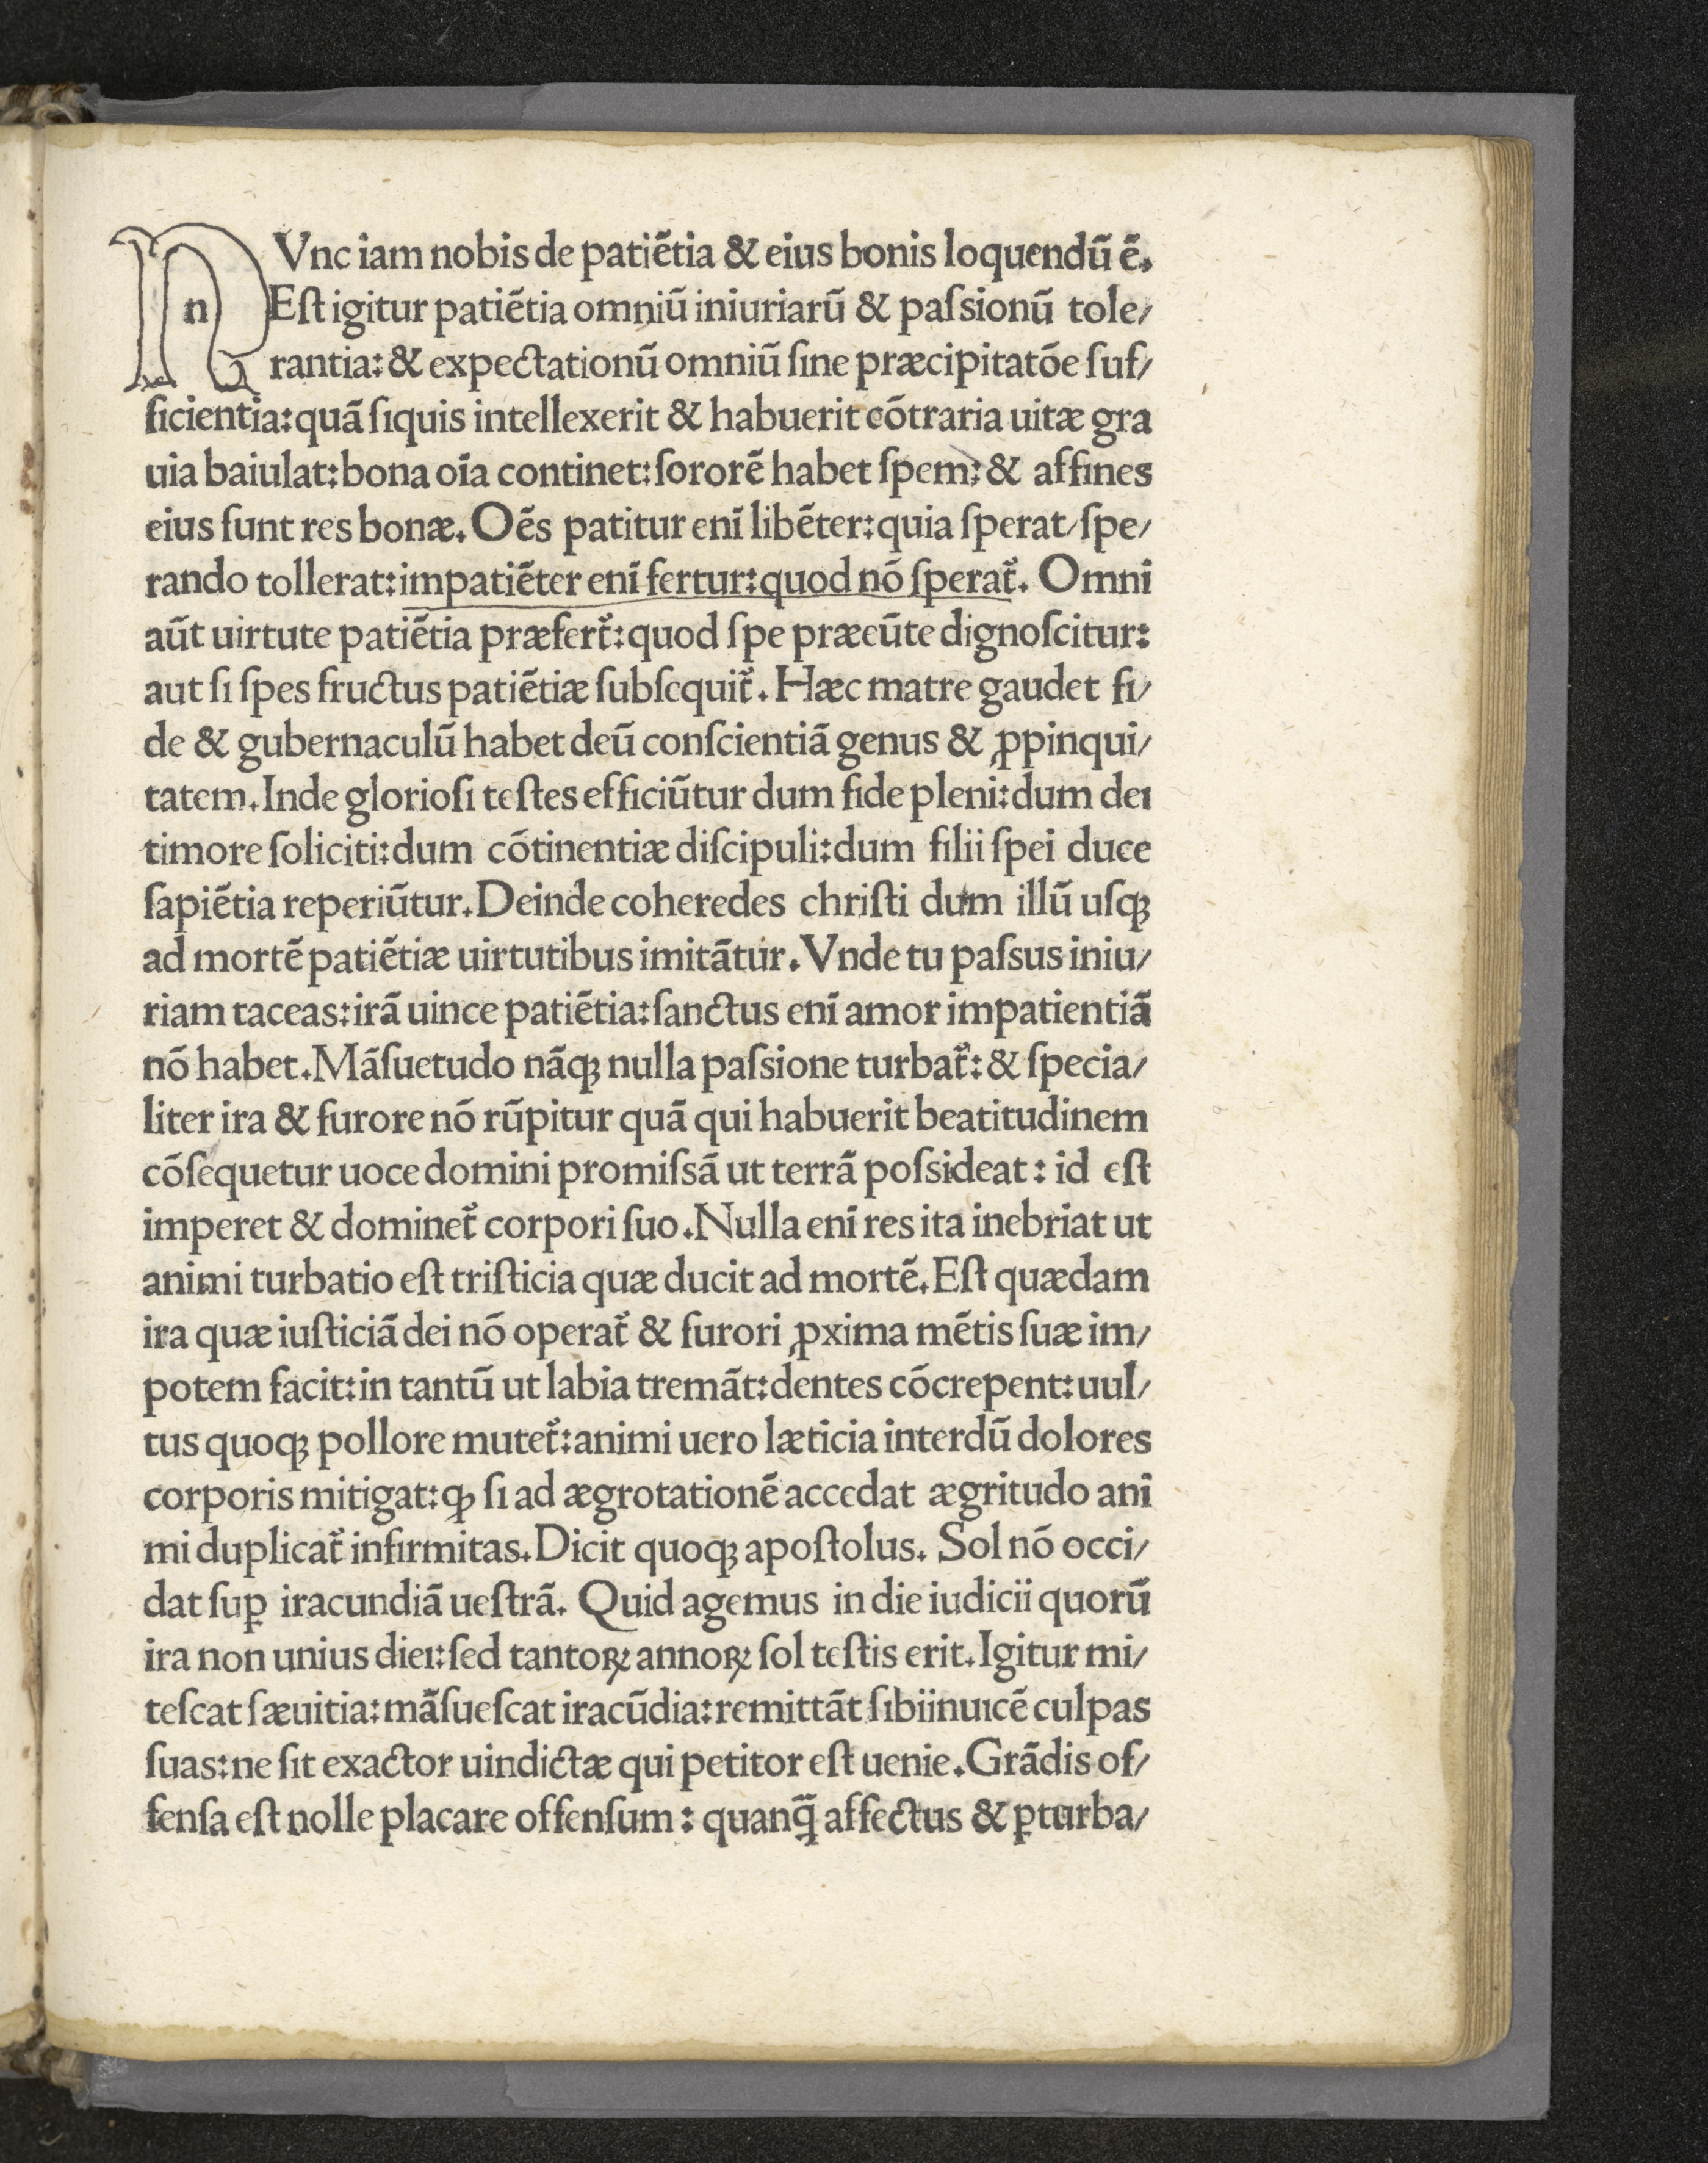 NVnc iam nobis de patiẽtia & eius bonis loquendũ ẽ.
n Eſt igitur patiẽtia omniũ iniuriarũ & paſsionũ tole/
rantia: & expectationũ omniũ ſine præcipitatõe ſuf/
ficientia: quã ſiquis intellexerit & habuerit cõtraria uitæ gra
uia baiulat: bona oĩa continet: ſororẽ habet ſpem: & affines
eius ſunt res bonæ. Oẽs patitur enĩ libẽter: quia ſperat/ſpe/
rando tollerat: impatiẽter enĩ fertur: quod nõ ſperat᷑. Omni
aũt uirtute patiẽtia præfert᷑: quod ſpe præeũte dignoſcitur:
aut ſi ſpes fructus patiẽtiæ ſubſequit᷑. Hæc matre gaudet fi/
de & gubernaculũ habet deũ conſcientiã genus & ꝓpinqui/
tatem. Inde glorioſi teſtes efficiũtur dum fide pleni: dum dei
timore ſoliciti: dum cõtinentiæ diſcipuli: dum filii ſpei duce
ſapiẽtia reperiũtur. Deinde coheredes chriſti dum illũ uſqꝫ
ad mortẽ patiẽtiæ uirtutibus imitãtur. Vnde tu paſsus iniu/
riam taceas: irã uince patiẽtia: ſanctus enĩ amor impatientiã
nõ habet. Mãſuetudo nãqꝫ nulla paſsione turbat᷑: & ſpecia/
liter ira & furore nõ rũpitur quã qui habuerit beatitudinem
cõſequetur uoce domini promiſsã ut terrã poſsideat: id eſt
imperet & dominet᷑ corpori ſuo. Nulla enĩ res ita inebriat ut
animi turbatio eſt triſticia quæ ducit ad mortẽ. Eſt quædam
ira quæ iuſticiã dei nõ operat᷑ & furori ꝓxima mẽtis ſuæ im/
potem facit: in tantũ ut labia tremãt: dentes cõcrepent: uul/
tus quoqꝫ pollore mutet᷑: animi uero læticia interdũ dolores
corporis mitigat: ꝙ ſi ad ægrotationẽ accedat ægritudo ani
mi duplicat᷑ infirmitas. Dicit quoqꝫ apoſtolus. Sol nõ occi/
dat ſuꝑ iracundiã ueſtrã. Quid agemus in die iudicii quorũ
ira non unius diei: ſed tantoꝝ annoꝝ ſol teſtis erit. Igitur mi/
teſcat ſæuitia: mãſueſcat iracũdia: remittãt ſibiinuicẽ culpas
ſuas: ne ſit exactor uindictæ qui petitor eſt uenie. Grãdis of/
fenſa eſt nolle placare offenſum: quanq̃ affectus & ꝑturba/